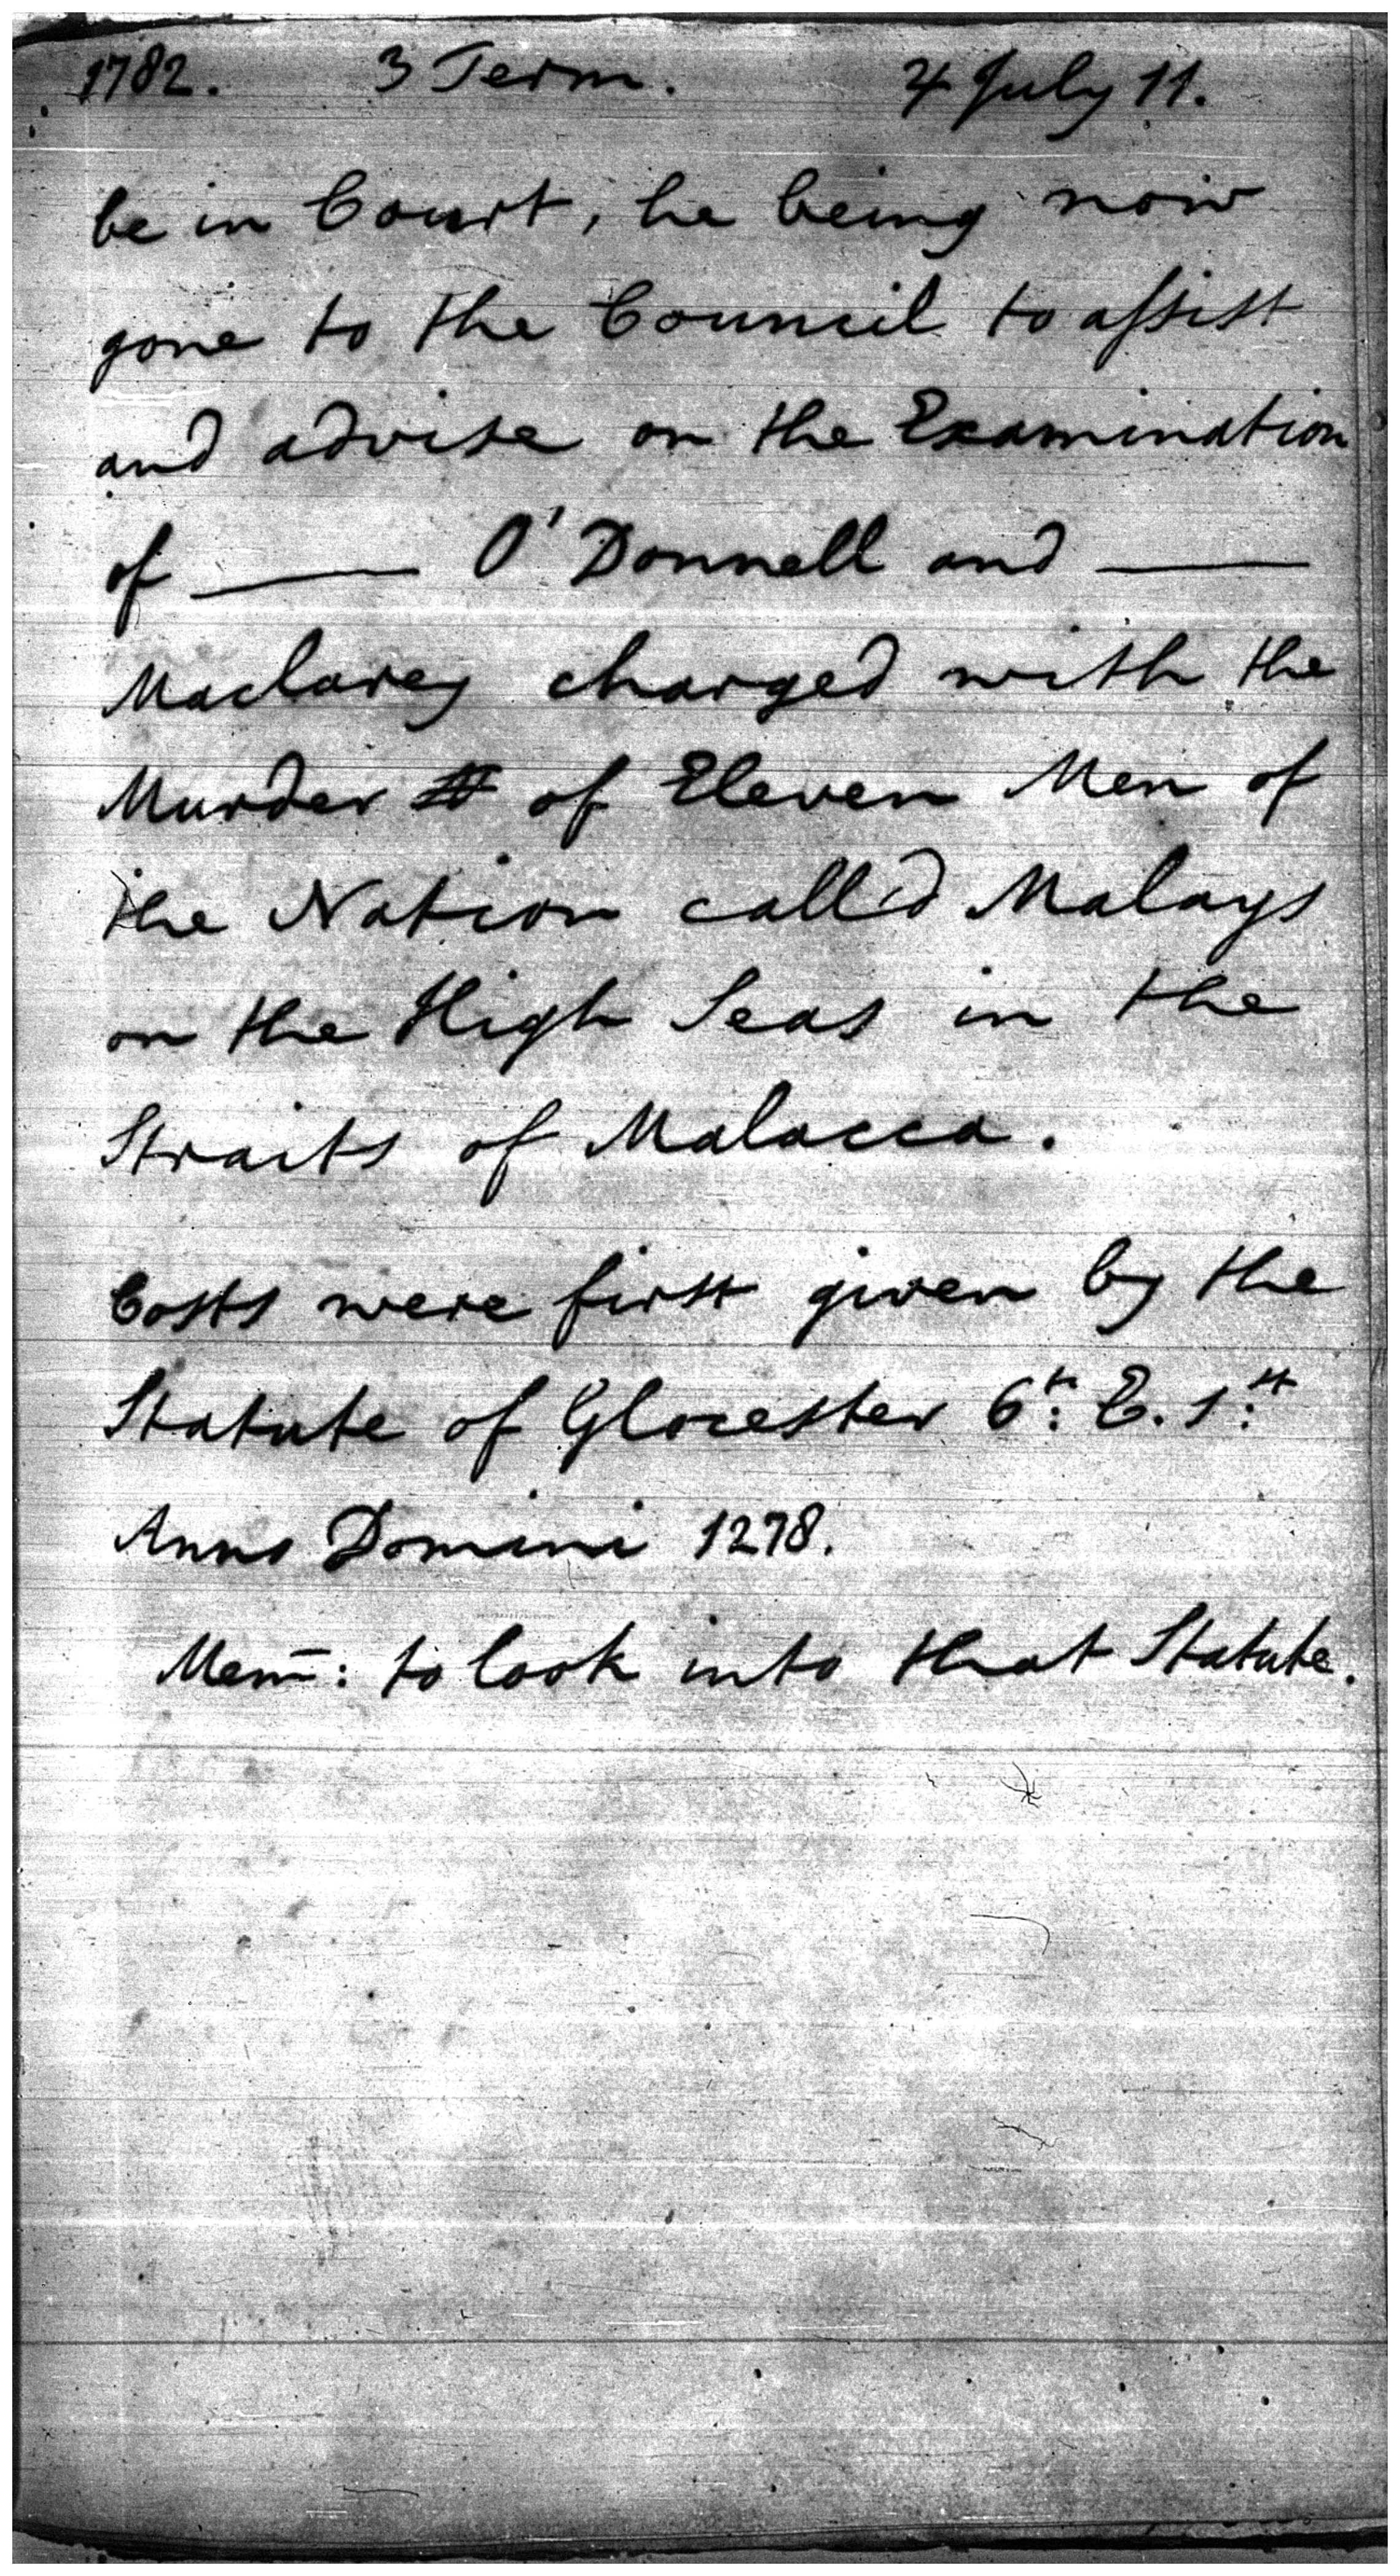 1782. 3 Term. 4 July 11.
be in Court, he being now
gone to the Council to assist
and advise on the Examination
of —— O'Donnell and ——
Maclarey charged with the
Murder of Eleven Men of
the Nation call'd Malays
on the High Seas in the
Straits of Malacca.
Costs were first given by the
Statute of Glocester 6th: E. 1st:
Anno Domini 1278.
Mem: to look into that Statute.